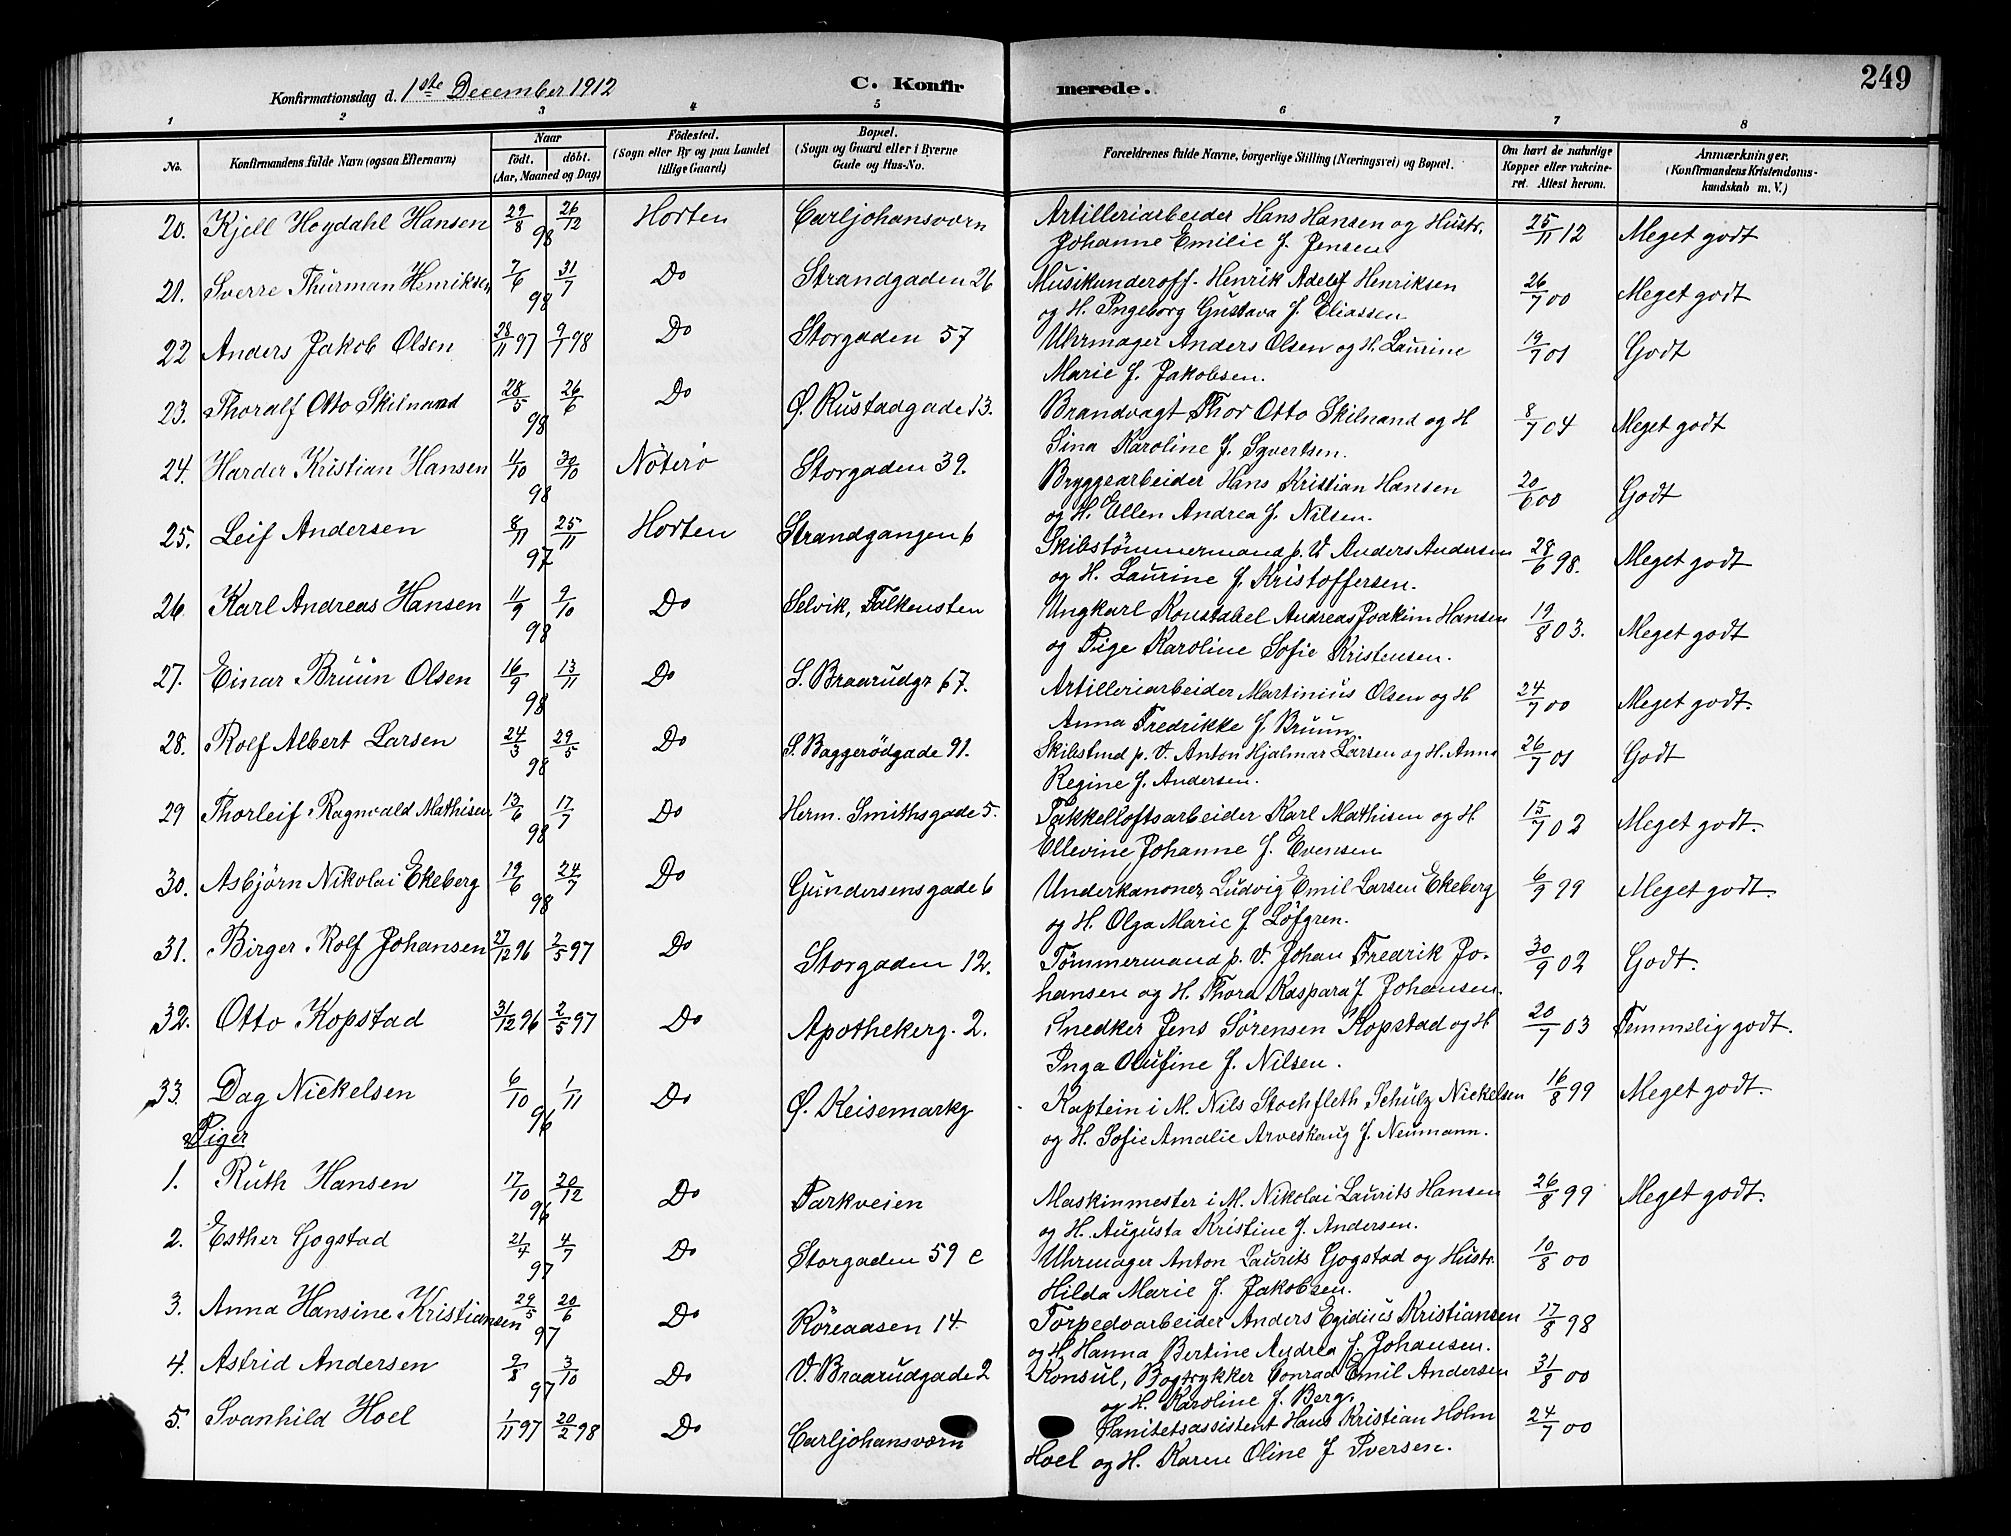 249
Konfirmationsdag d. 1ste December 1912 C. Konfir merede.
1 2 3 4 5 6 7 8
No. Konfirmandens fulde Navn (ogsaa Efternavn) Naar födt. döbt. (Aar, Maaned og Dag) Födested. (Sogn eller By og paa Landet tillige Gaard) Bopæl. (Sogn og Gaard eller i Byerne Gade og Hus-No. Forældrenes fulde Navne, borgerlige Stilling (Næringsvei) og Bopæl. Om havt de naturlige Kopper eller vakcineret. Attest herom. Anmærkninger. (Konfirmandens Kristendomskundskab m. V.)
20. Kjell Høydahl Hansen 29/8 26/12 98 Horten Carljohansværn Artilleriarbeider Hans Hansen og Hustr. 25/11 12 Meget godt
Johanne Emilie f. Jensen
21. Sverre Thurman Henriksen 7/6 31/7 98 Do Strandgaden 26 Musikunderoff. Henrik Adolf Henriksen 26/7 00 Meget godt
og H. Ingeborg Gustava f. Eliassen
22 Anders Jakob Olsen 28/11 97 9/7 98 Do Storgaden 57 Uhrmager Anders Olsen og H. Laurine 19/7 01 Godt
Marie f. Jakobsen.
23. Thoralf Otto Skilnand 28/5 26/6 98 Do Ø. Rustadgade 13. Brandvagt Thor Otto Skilnand og H 8/7 04 Meget godt
Sina Karoline f. Syvertsen.
24. Harder Kristian Hansen 11/10 30/10 98 Nöterö Storgaden 39. Bryggearbeider Hans Kristian Hansen 20/6 00 Godt
og H. Ellen Andrea f. Nilsen.
25. Leif Andersen 8/11 25/11 97 Horten Strandgangen 6 Skibstömmermand p. V Anders Andersen 28/6 98. Meget godt
og H. Laurine f. Kristoffersen.
26 Karl Andreas Hansen 11/9 9/10 98 Do Selvik, Falkensten Ungkarl Konstabel Andreas Joakim Hansen 19/8 03. Meget godt
og Pige Karoline Sofie Kristensen.
27. Einar Bruun Olsen 16/9 13/11 98 Do S. Braarudgr 67. Artilleriarbeider Martinius Olsen og H 24/7 00 Meget godt.
Anna Fredrikke f. Bruun.
28. Rolf Albert Larsen 24/3 29/5 98 Do S. Baggerödgade 91. Skibstmd p. V. Anton Hjalmar Larsen og H. Anna 26/7 01 Godt
Regine f. Andersen.
29 Thorleif Ragnvald Mathisen 13/6 17/7 98 Do Herm. Smithsgade 5. Takkelloftsarbeider Karl Mathisen og H 15/7 02 Meget godt.
Ellevine Johanne f. Evensen
30. Asbjörn Nikolai Ekeberg 19/6 24/7 98 Do Gundersensgade 6 Underkanoner Ludvig Emil Larsen Ekeberg 6/9 99 Meget godt.
og H. Olga Marie f Löfgren.
31. Birger Rolf Johansen 27/12 96 2/5 97 Do Storgaden 12. Tömmermand p. V. Johan Fredrik Jo- 30/9 02 Godt.
hansen og H. Thora Kaspara f Johansen.
32. Otto Kopstad 31/12 96 2/5 97 Do Apothekerg. 2. Snedker Jens Sörensen Kopstad og H 20/7 03 Temmelig godt.
Inga Olufine f. Nilsen.
33. Dag Nickelsen 6/10 1/11 96 Do Ø. Keisemarkg Kaptein i M. Nils Stochfleth Schulz Nickelsen 16/8 99 Meget godt.
og H. Sofie Amalie Arveskoug f. Neumann.
Piger
1. Ruth Hansen 17/10 20/12 96 Do Parkveien Maskinmester i M. Nikolai Laurits Hansen 26/8 99 Meget godt.
og H. Augusta Kristine f. Andersen.
2. Esther Gogstad 21/4 4/7 97 Do Storgaden 59 c Uhrmager Anton Laurits Gogstad og Hustr. 10/8 00
Hilda Marie f. Jakobsen.
3. Anna Hansine Kristiansen 29/5 20/6 97 Do Röreaasen 14. Torpedoarbeider Anders Egidius Kristiansen 17/8 98
og H. Hanna Bertine Andrea f. Johansen.
4. Astrid Andersen 9/8 3/10 97 Do V. Braarudgade 2 Konsul, Bogtrykker Conrad Emil Andersen 31/8 00
og H. Karoline f. Berg.
5. Svanhild Hoel 1/11 97 20/2 98 Do Carljohansværn Sanitetsassistent Hans Kristian Holm 24/7 00
Hoel og H. Karen Oline f Iversen.